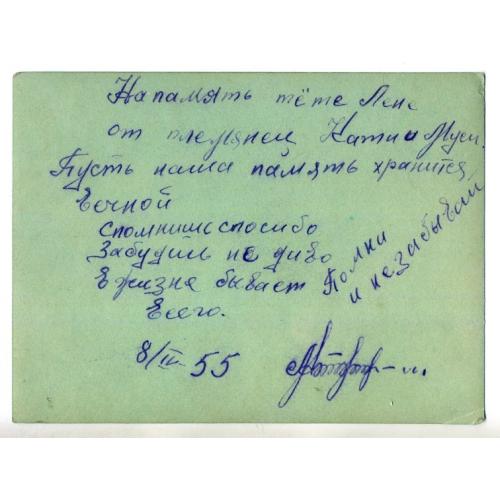 На память тёте Лене
от племянец Кати и Муси.
Пусть наша память хранится
Вечной
Спомнишь спосибо
Забудишь не диво
В жизне бывает
Всего.
Помни
и незабывай
8/IV-55